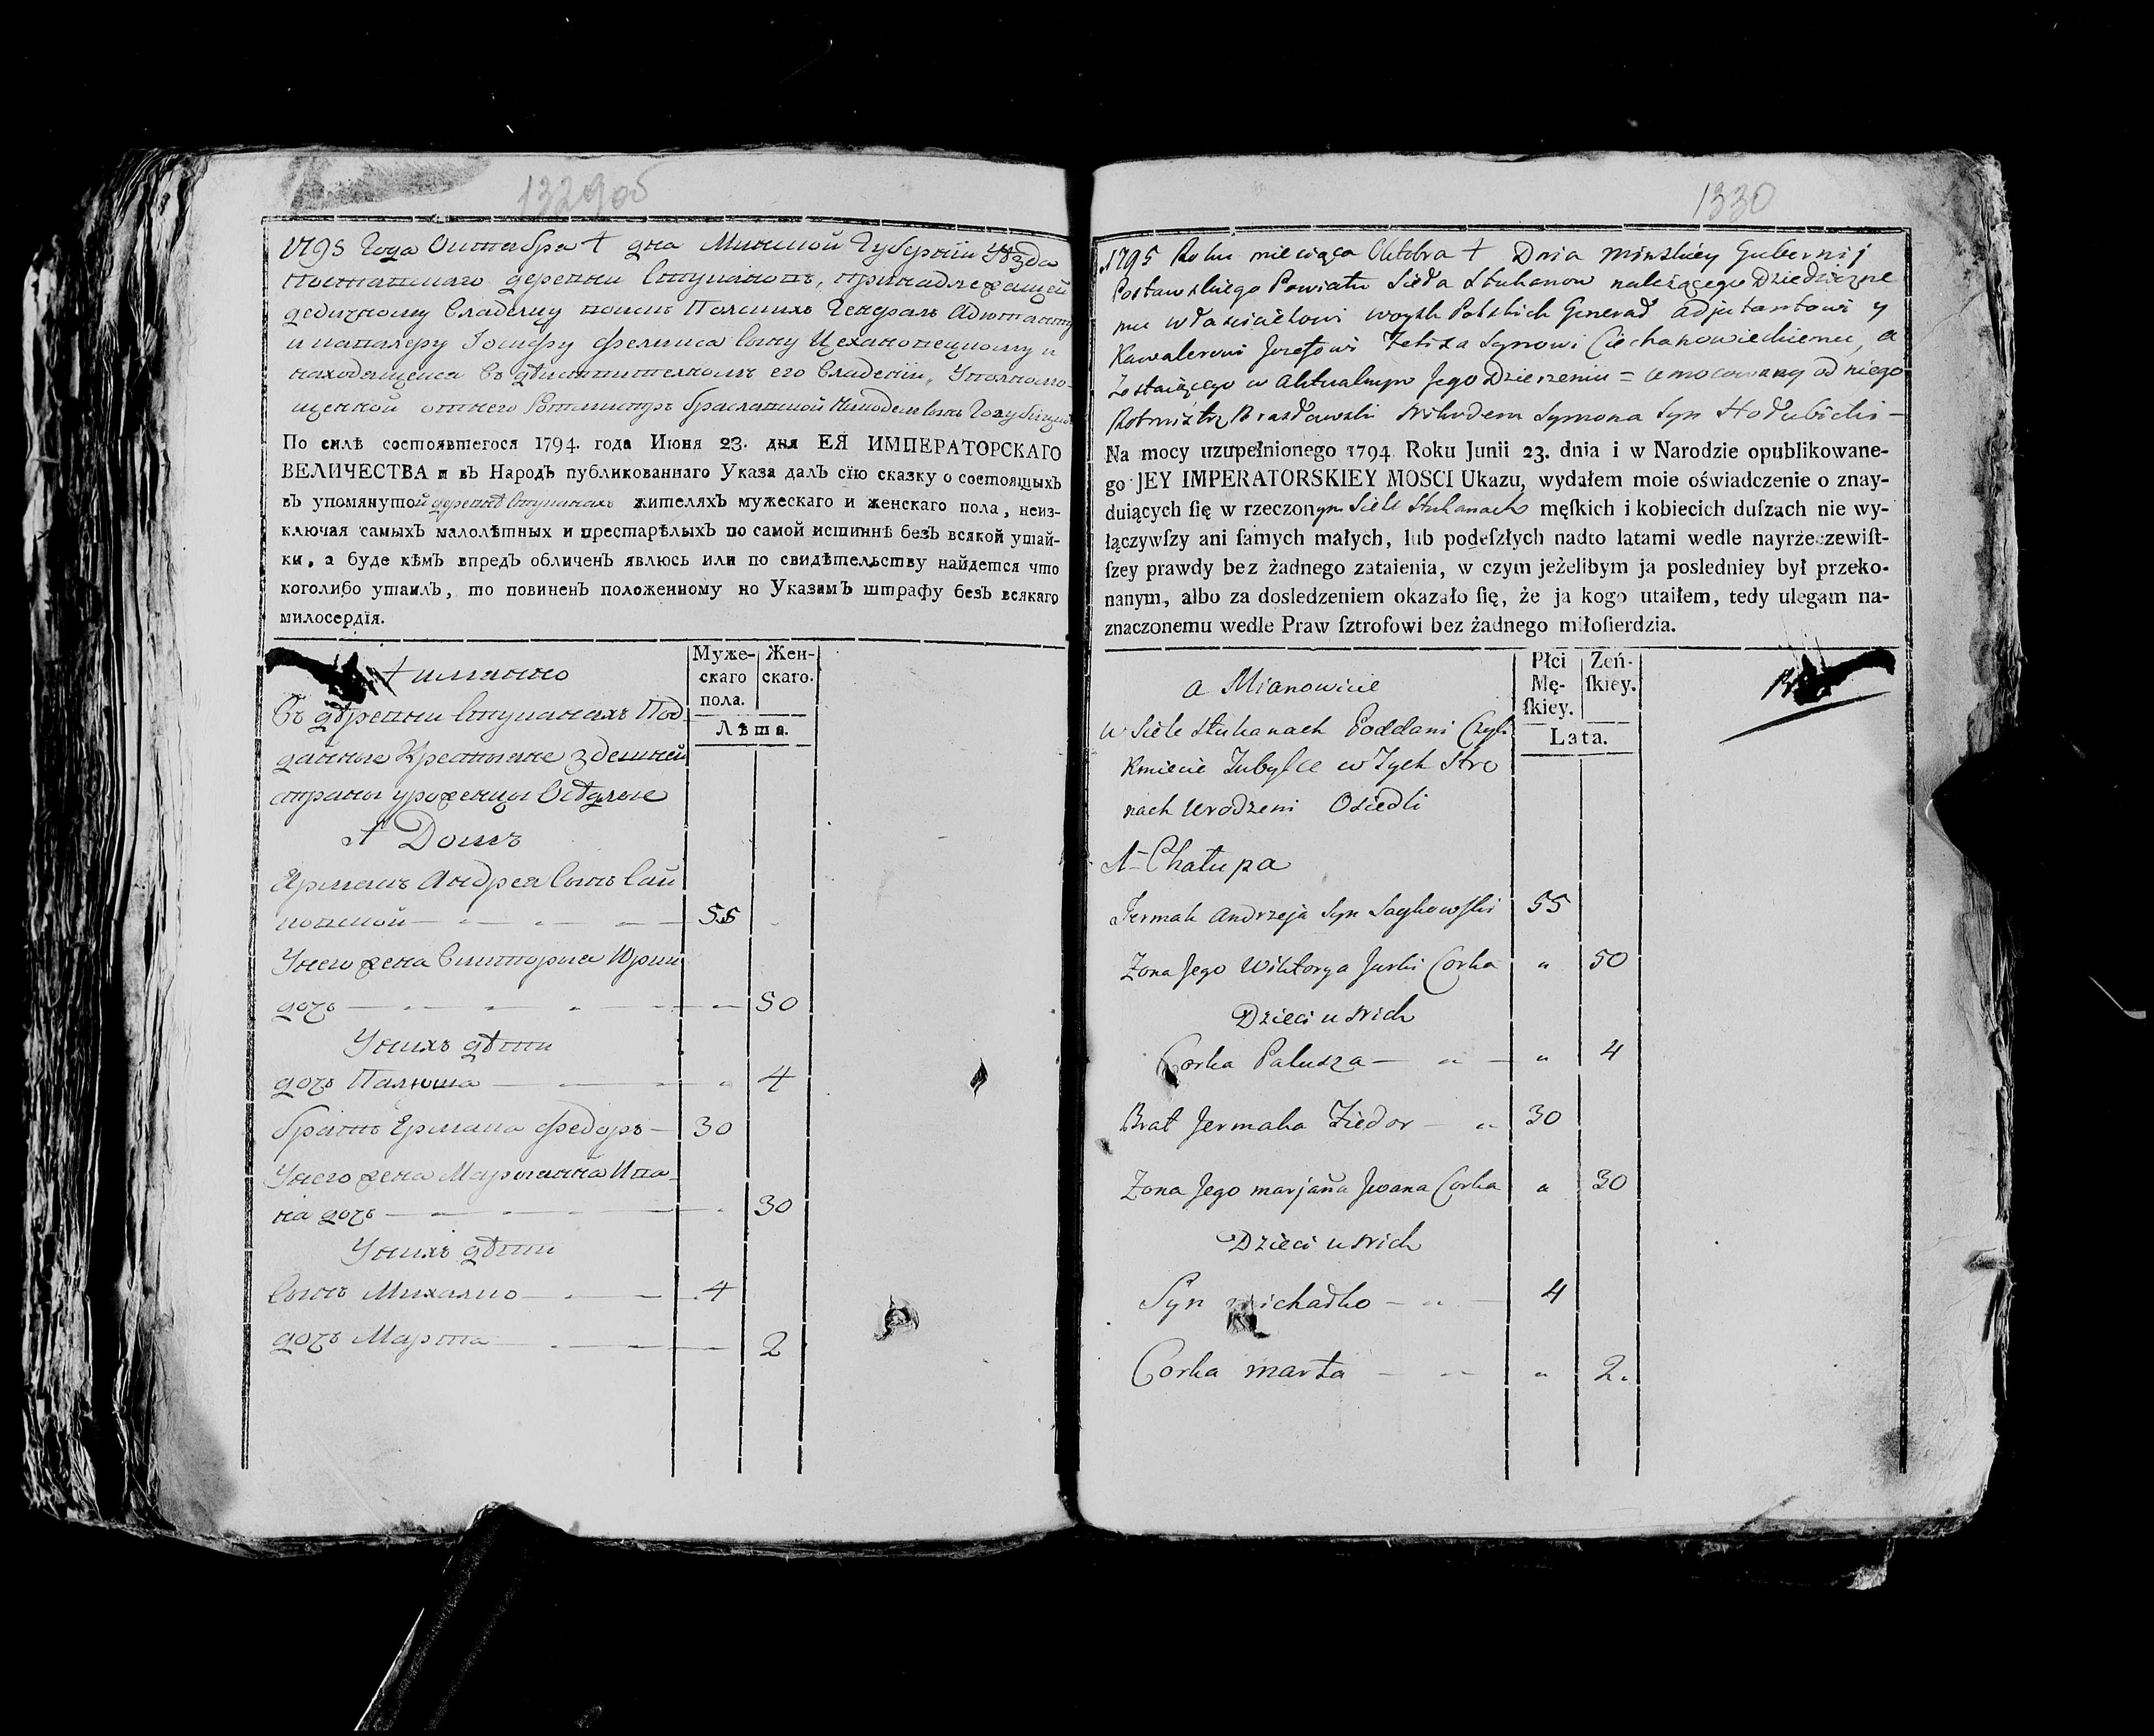 1329об
1795 Года Октября 4 дна Минской Губернии Уѣзда
Поставскаго деревни Стукановъ, принадлежащей
дедичному Владелцу войскъ Полскихъ Генералъ Адютанту
и кавалеру Іосифу Феликса сыну Цехановецкому и
находящеися въ дѣиствителномъ его владении, Уполномо-
щенной отнего Ротмистръ Браславской Никодем сынъ Голубицкой
По силѣ состоявшегося 1794. года Июня 23. дня ЕЯ ИМПЕРАТОРСКАГО
ВЕЛИЧЕСТВА и въ Народъ публикованнаго Указа далъ сїю сказку о состоящыхъ
въ упомянутой деревнѣ Стуканахъ жителяхъ мужескаго и женскаго пола, неиз-
ключая самыхъ малолѣтных и престарѣлыхъ по самой истиннѣ безъ всякой утай-
ки, а буде кѣмъ впредъ обличенъ явлюсь или по свидѣтельству найдется что
коголибо утаилъ, то повиненъ положенному по Указамъ штрафу безъ всякаго
милосердїя.
имянно
Муже-
скаго
пола.
Жен-
скаго.
Лѣта.
Въ дѣревни Стуканахъ Под
данные Крестьяне здешней
страны уроженцы Осѣдлые
1 Домъ
Ермакъ Андрея сынъ Сай
ковской 55
Унего жена Викторыя Юрки
дочь 50
Унихъ дѣти
дочь Палюша 4
братъ Ермака Федоръ 30
Унего жена Марыанна Ива
на дочь 30
Унихъ дѣти
сынъ Михалко 4
дочь Марта 2
1330
1795 Roku miesiąca Oktobra 4 Dnia Minskiey Gubernij
Postawskiego Powiatu Sieła Stukanow należącego Dziedziczne
mu właścicielowi woysk Polskich Generał adjutantowi y
Kawalerowi Jozefowi Felixa Synowi Ciechanowieckiemu, a
Zostaiącego w Aktualnym Jego Dzierzeniu = Umocowany od niego
Rotmistrz Brasławski Nikodem Symona Syn Hołubicki -
Na mocy uzupełnionego 1794 Roku Junii 23. dnia i w Narodzie opublikowane-
go JEY IMPERATORSKIEY MOSCI Ukazu, wydałem moie oświadczenie o znay-
duiących ſię w rzeczonym Siele Stukanach męſkich i kobiecich duſzach nie wy-
łączywſzy ani ſamych małych, lub podeſzłych nadto latami wedle nayrzeczewiſt-
ſzey prawdy bez żadnego zataienia, w czym jeżelibym ja posledniey był przeko-
nanym, albo za dosledzeniem okazało ſię, że ja kogo utaiłem, tedy ulegam na-
znaczonemu wedle Praw ſztrofowi bez żadnego miłoſierdzia.
a Mianowicie
Płci
Mę-
ſkiey.
Zeń-
ſkiey.
Lata.
w Siele Stukanach Poddani Czyli
Kmiecie Tubylce w Tych Stro
nach Urodzeni Osiedli
1 Chałupa
Jermak Andrzeja Syn Saykowski 55
Zona Jego Wiktorya Jurki Corka " 50
Dzieci u Nich
Corka Palusza " 4
Brat Jermaka Fiedor 30
Zona Jego Marjana Jwana Corka " 30
Dzieci u Nich
Syn Michałko 4
Corka Marta " 2.